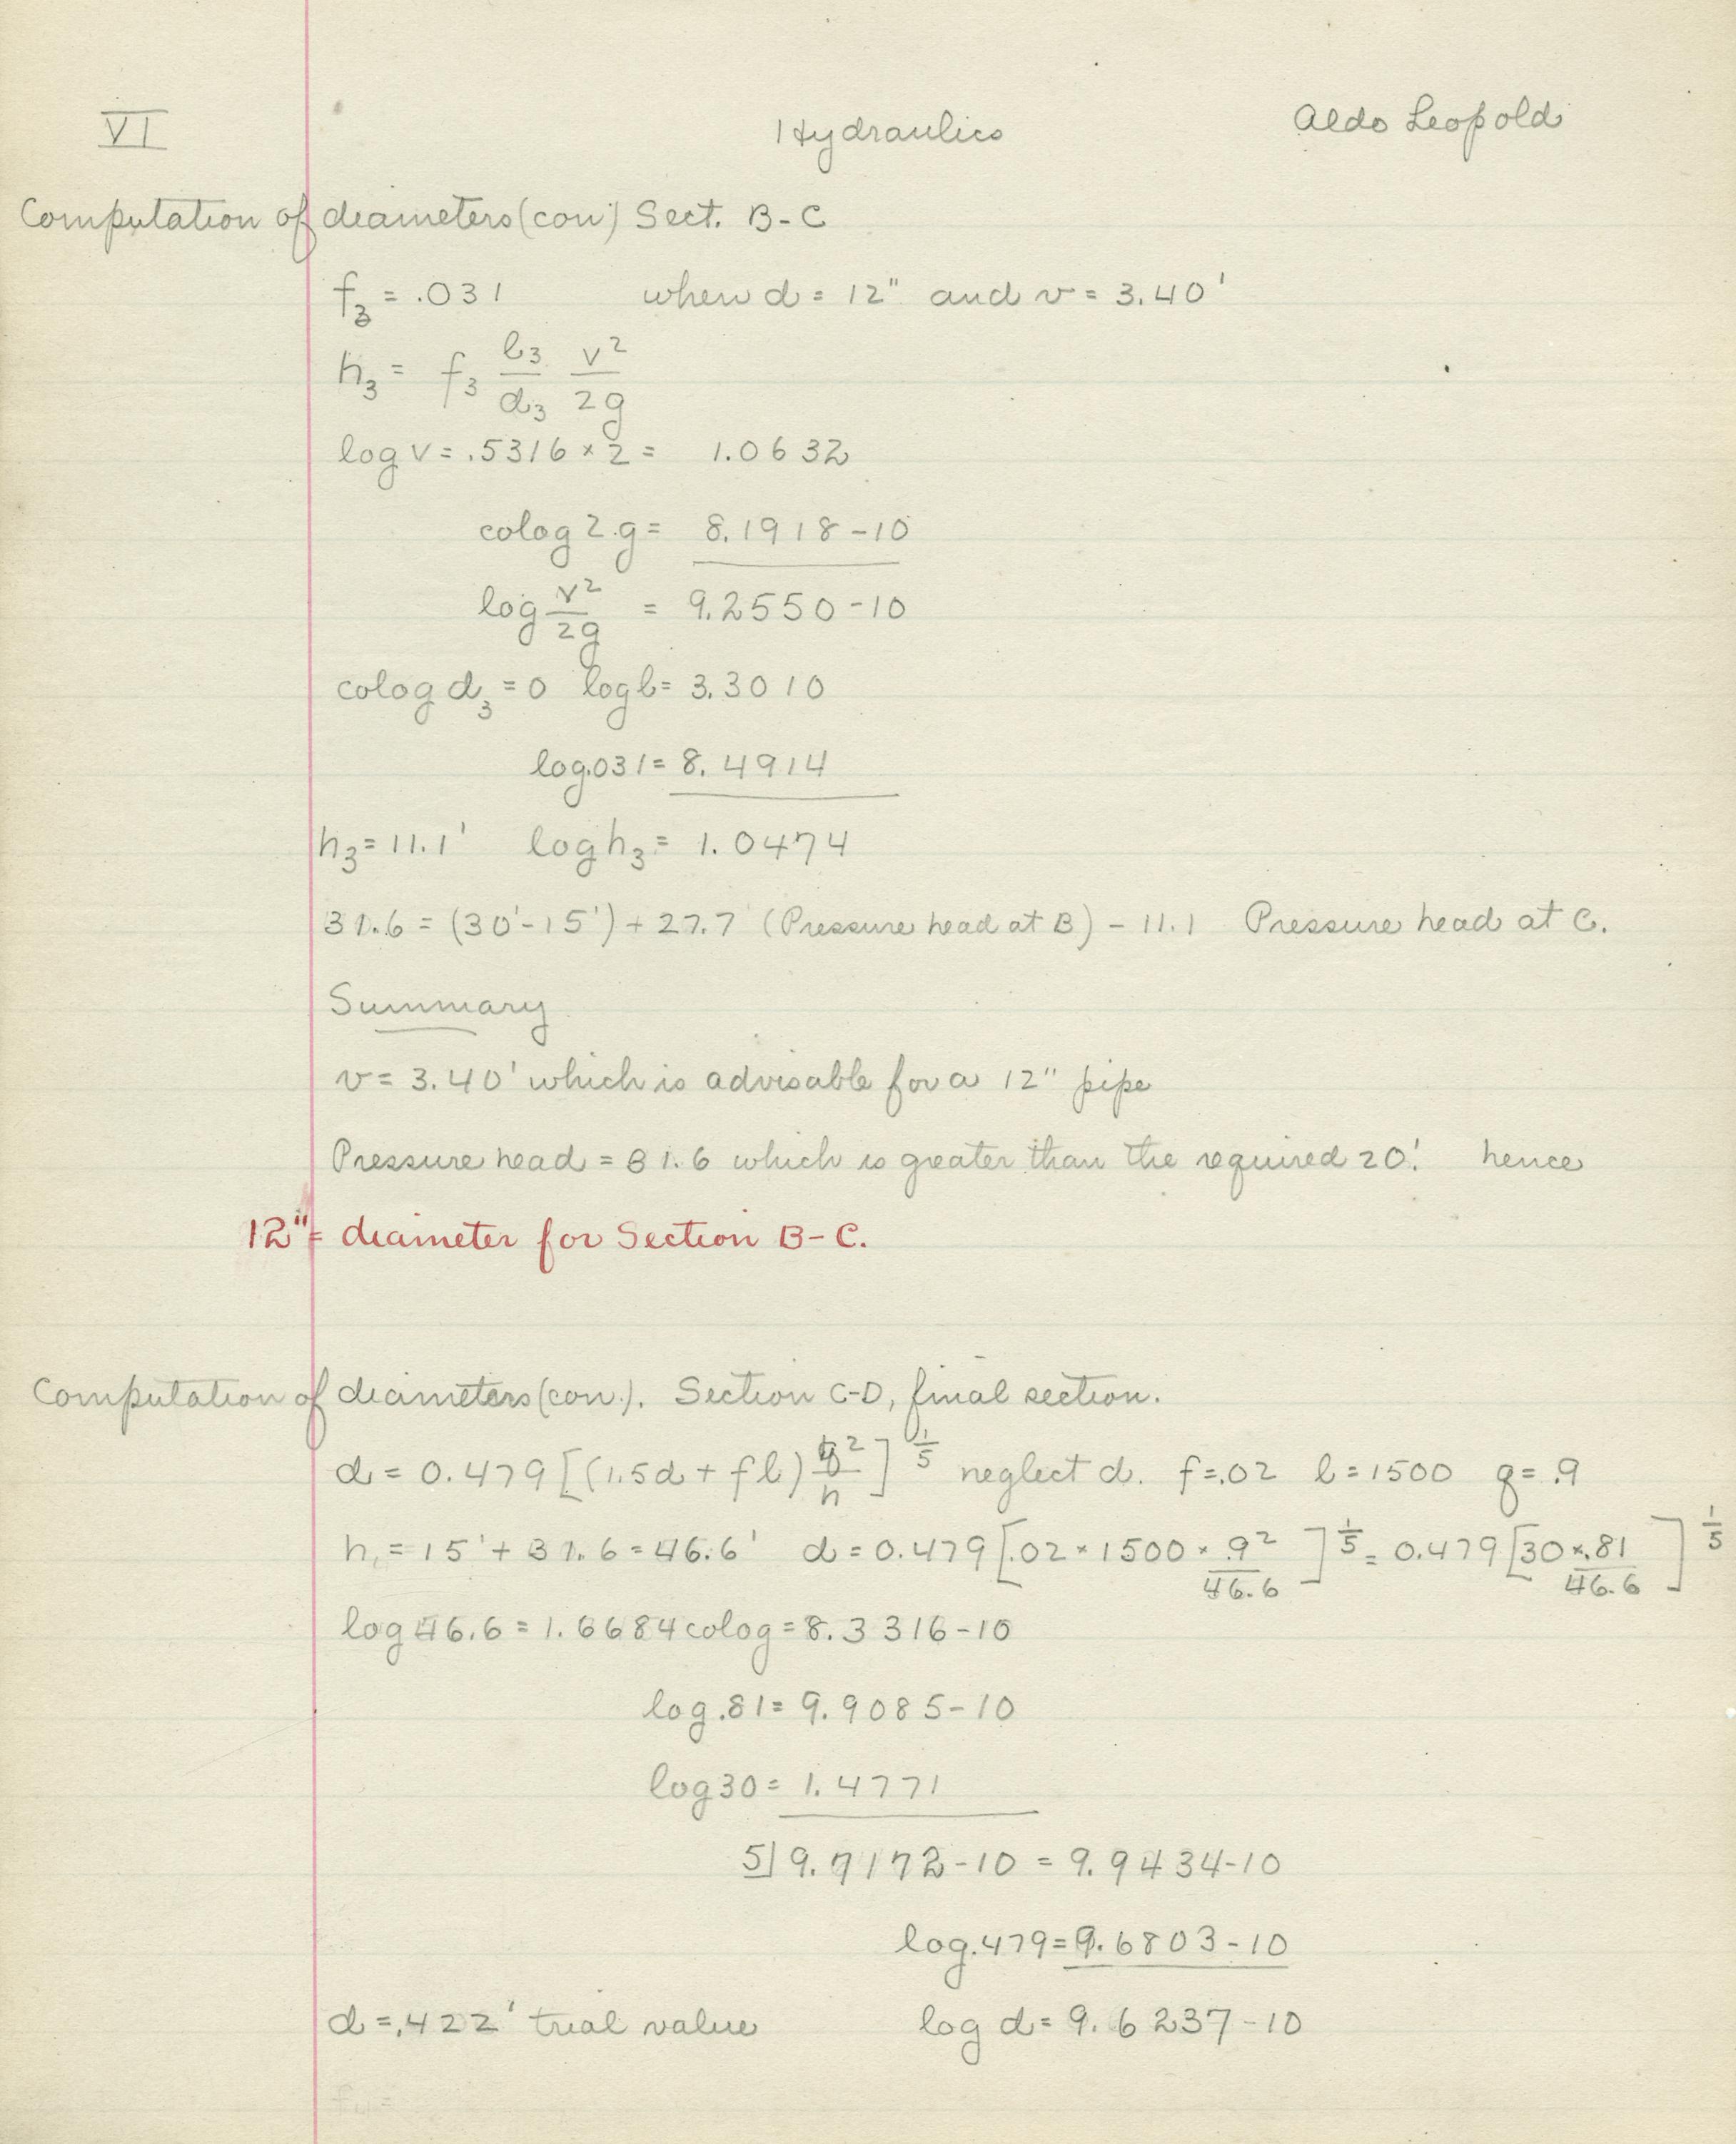 VI Hydraulics Aldo Leopold
Computation of diameters (con') Sect. B-C
f₃ = .031 when d = 12" and v = 3.40'
h₃ = f₃ l₃/d₃ v²/2g
log v = .5316 × 2 = 1.0632
colog 2.g = 8.1918-10
log v²/2g = 9.2550-10
colog d₃ = 0 log l = 3.3010
log .031 = 8.4914
h₃ = 11.1' log h₃ = 1.0474
31.6 = (30'-15') + 27.7 (Pressure head at B) - 11.1 Pressure head at C.
Summary
v = 3.40' which is advisable for a 12" pipe
Pressure head = 31.6 which is greater than the required 20'. hence
12" = diameter for Section B-C.
Computation of diameters (con.). Section C-D, final section.
d = 0.479 [(1.5d + fl) q²/h]^1/5 neglect d. f=.02 l=1500 q=.9
h, = 15' + 31.6 = 46.6' d = 0.479 [.02 × 1500 × .9²/46.6]^1/5 = 0.479 [30 × .81/46.6]^1/5
log 46.6 = 1.6684 colog = 8.3316-10
log .81 = 9.9085-10
log 30 = 1.4771
5) 9.7172-10 = 9.9434-10
log .479 = 9.6803-10
d = .422' trial value log d = 9.6237-10